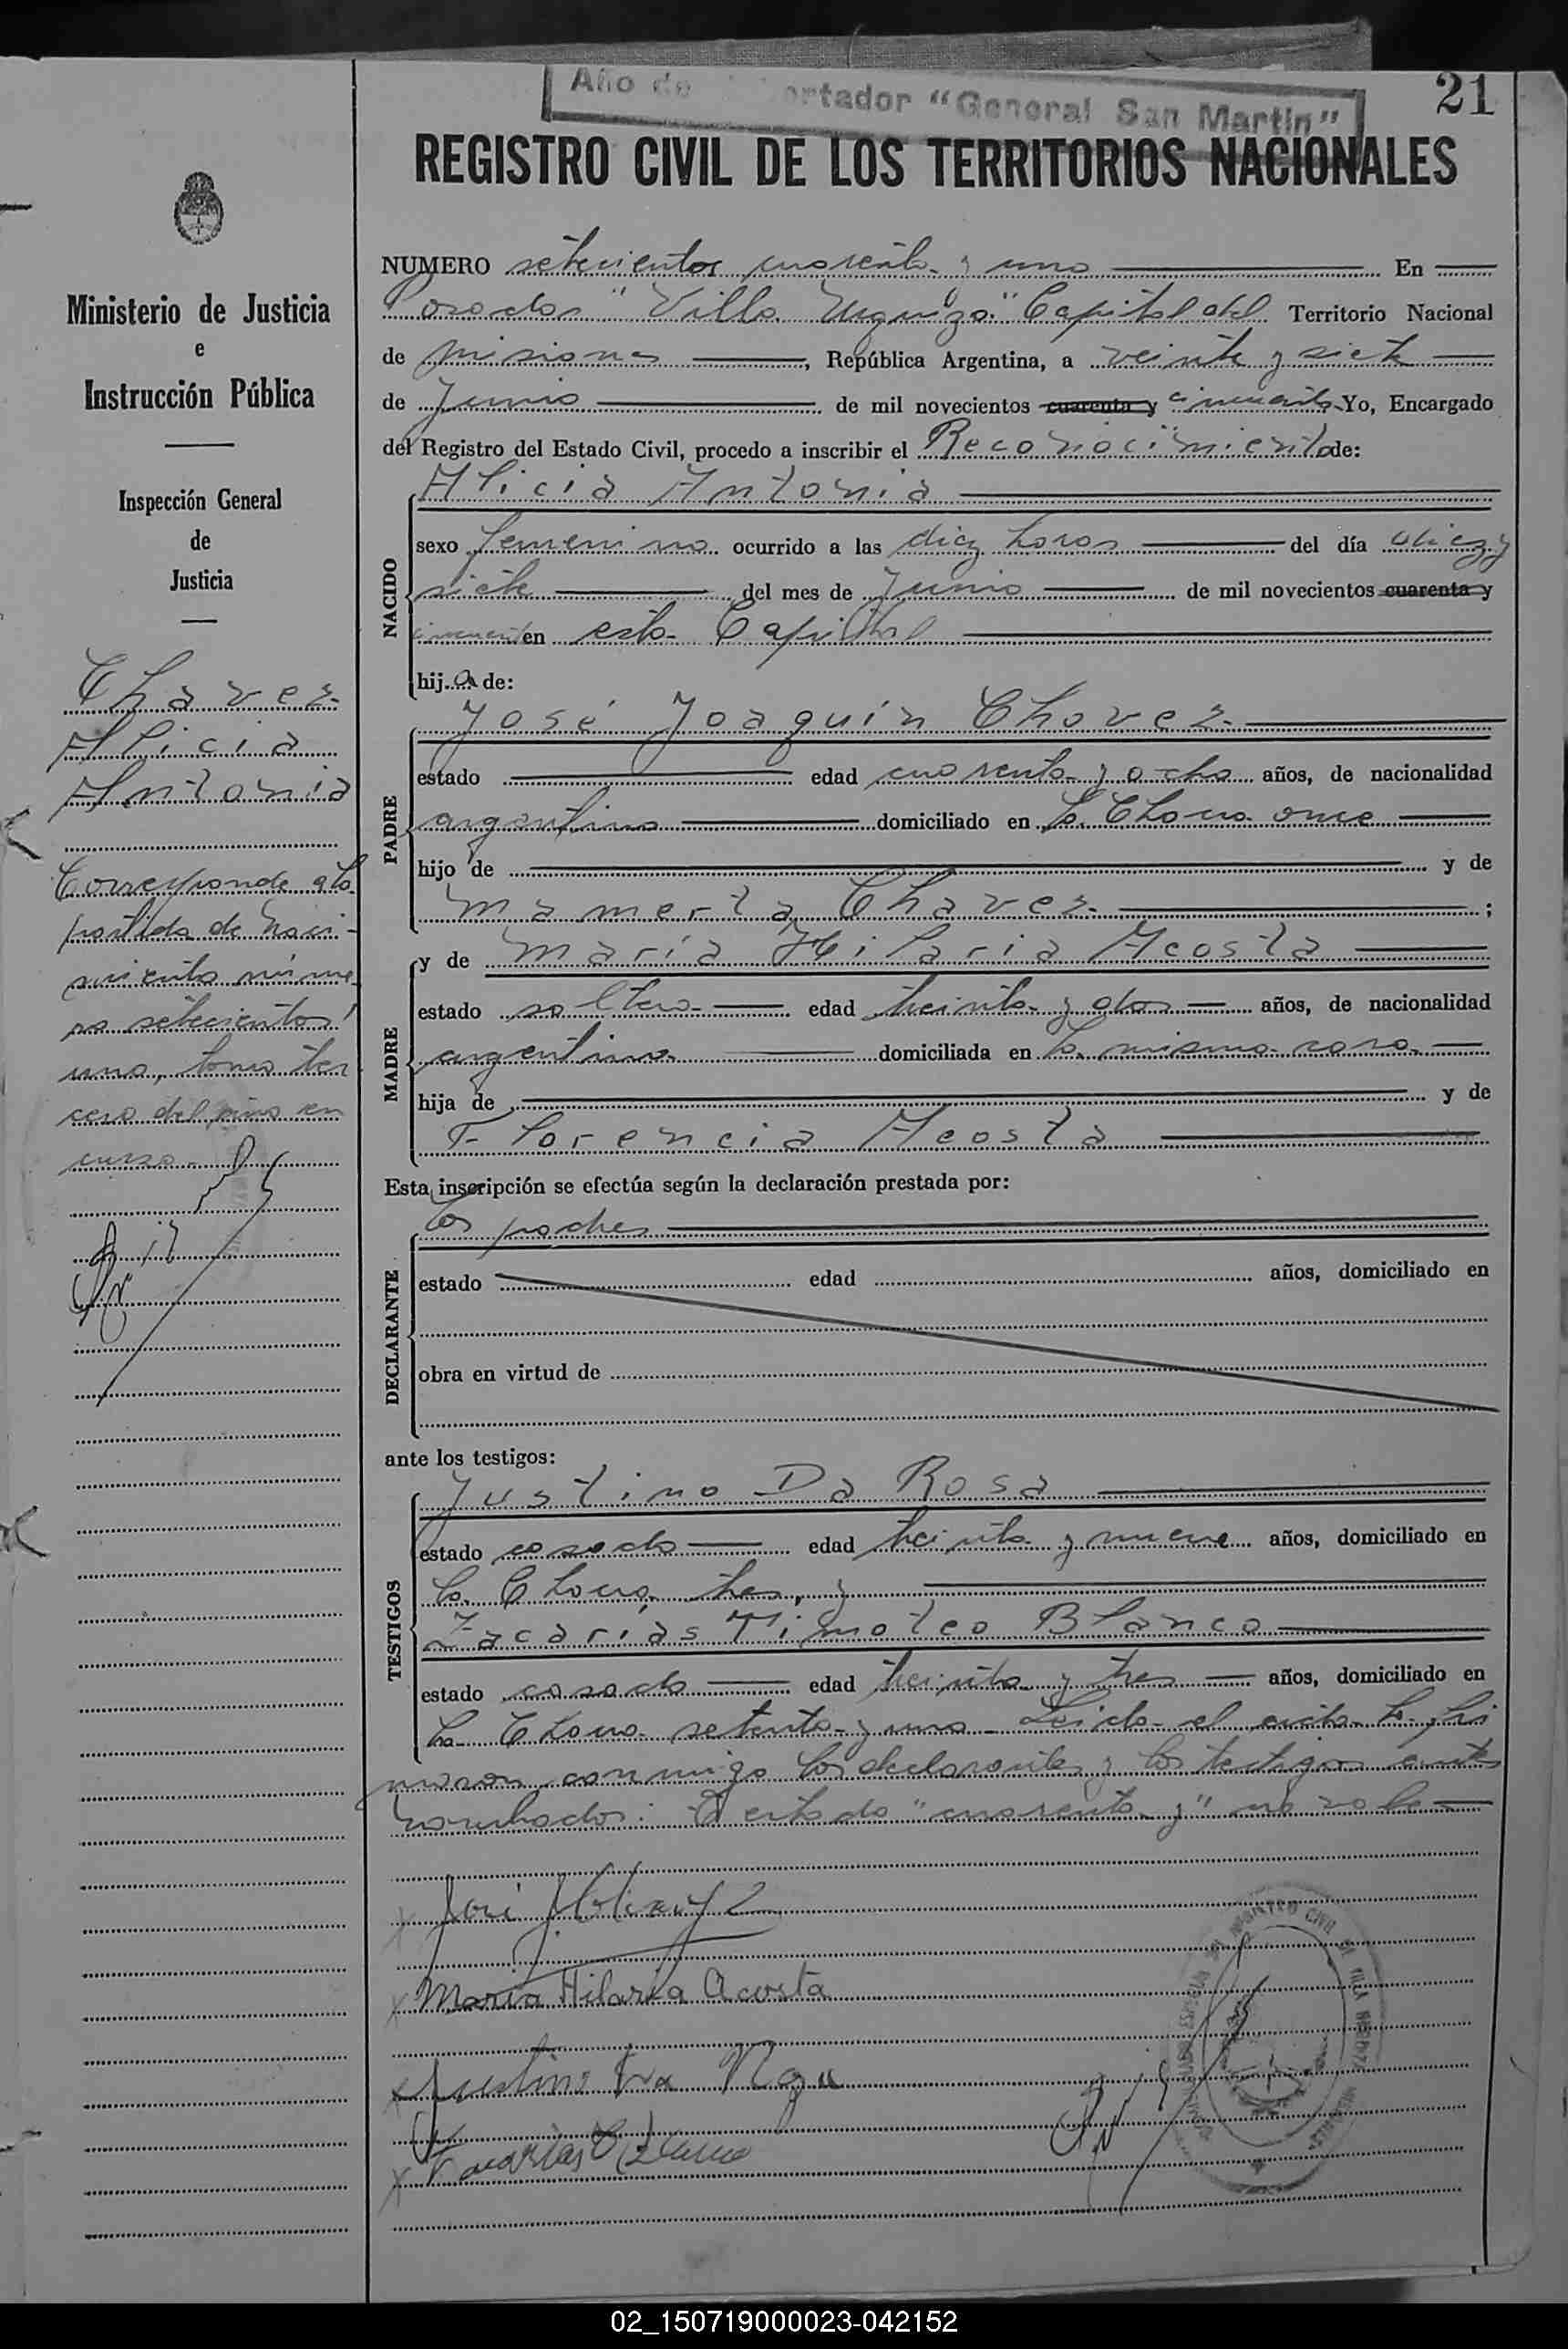 Año de ertador "General San Martín"
21
REGISTRO CIVIL DE LOS TERRITORIOS NACIONALES
Ministerio de Justicia
e
Instrucción Pública
Inspección General
de
Justicia
Chavez
Alicia
Antonia
Corresponde a la
partida de naci-
miento núme-
ro setecientos
uno, tomo ter
cero del año en
curso
NUMERO setecientos cuarenta y uno En
Posadas "Villa Urquiza" Capital del Territorio Nacional
de Misiones, República Argentina, a veinte y siete
de Junio de mil novecientos cuarenta y cincuenta Yo, Encargado
del Registro del Estado Civil, procedo a inscribir el Reconocimiento de:
NACIDO
Alicia Antonia
sexo femenino ocurrido a las diez horas del día diez y
siete del mes de Junio de mil novecientos cuarenta y
cincuenta en esta Capital
hija de:
PADRE
José Joaquín Chavez
estado edad cuarenta y ocho años, de nacionalidad
argentino domiciliado en la Chacra once
hijo de y de
Mamerta Chavez ;
MADRE
y de María Hilaria Acosta
estado soltera edad treinta y dos años, de nacionalidad
argentina domiciliada en la misma casa
hija de y de
Florencia Acosta
Esta inscripción se efectúa según la declaración prestada por:
DECLARANTE
los padres
estado edad años, domiciliado en
obra en virtud de
ante los testigos:
TESTIGOS
Justino Da Rosa
estado casado edad treinta y nueve años, domiciliado en
la Chacra tres, y
Zacarías Timoteo Blanco
estado casado edad treinta y tres años, domiciliado en
la Chacra setenta y uno - Leída el acta la fir
maron conmigo los declarantes y los testigos antes
nombrados: El testado "cuarenta y" no vale
José J Chavez
María Hilaria Acosta
Justino Da Rosa
Zacarias T Blanco
REGISTRO CIVIL
02_150719000023-042152